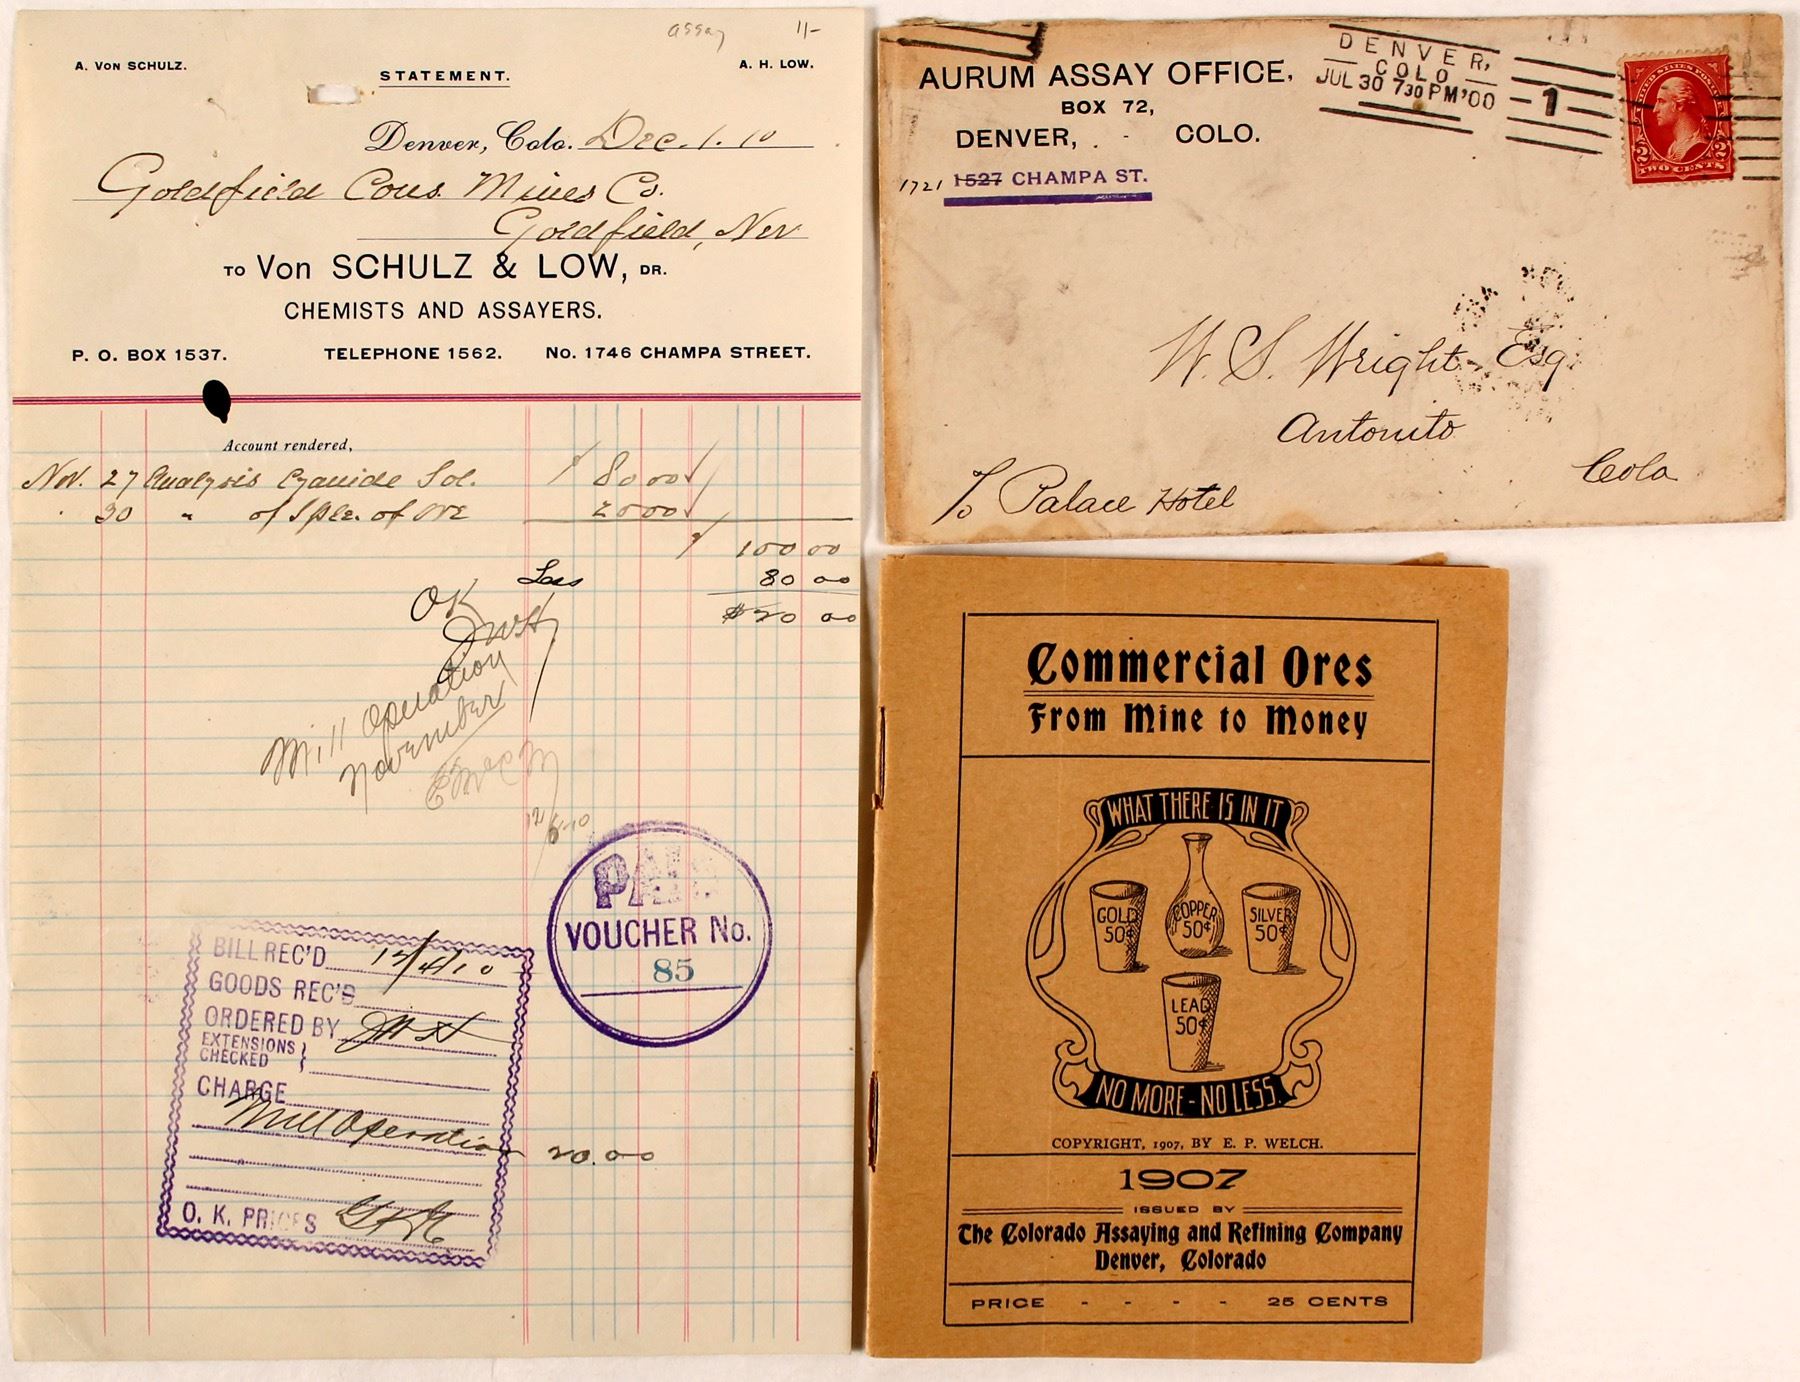 assay 11-
A. VON SCHULZ.
A. H. LOW.
STATEMENT.
Denver, Colo. Dec. 1. 10
Goldfield Cons. Mines Co.
Goldfield, Nev
TO Von SCHULZ & LOW, DR.
CHEMISTS AND ASSAYERS.
P. O. BOX 1537. TELEPHONE 1562. No. 1746 CHAMPA STREET.
Account rendered,
Nov. 27 Analysis Cyanide Sol. 80 00
30 " of Sple. of Ore 20 00
100 00
Less 80 00
$20 00
OK
JWH
Mill Operation
November
12/6-10
PAID
VOUCHER No.
85
BILL REC'D 12/4/10
GOODS REC'D
ORDERED BY JWH
EXTENSIONS
CHECKED
CHARGE
Mill Operation 20.00
O. K. PRICES
AURUM ASSAY OFFICE,
BOX 72,
DENVER, - COLO.
1721 1527 CHAMPA ST.
DENVER,
COLO
JUL 30 730 PM '00
1
UNITED STATES POSTAGE
2 2
TWO CENTS
W. S. Wright Esq
Antonito
Colo
c/o Palace Hotel
Commercial Ores
From Mine to Money
WHAT THERE IS IN IT
GOLD 50¢
COPPER 50¢
SILVER 50¢
LEAD 50¢
NO MORE - NO LESS.
COPYRIGHT, 1907, BY E. P. WELCH.
1907
ISSUED BY
The Colorado Assaying and Refining Company
Denver, Colorado
PRICE - - - - 25 CENTS